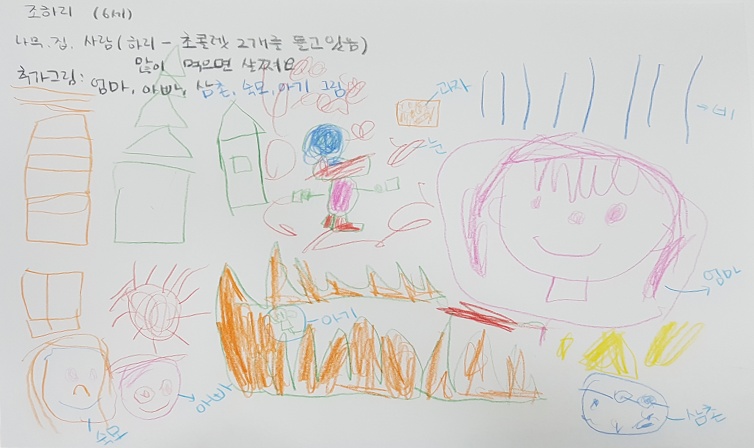 조하리 (6세)
나무. 집. 사람 (하리 - 초콜렛 2개를 들고 있음)
많이 먹으면 살쪄요
추가그림: 엄마, 아빠, 삼촌, 숙모, 아기 그림
과자
비
눈
엄마
아기
아빠
숙모
삼촌